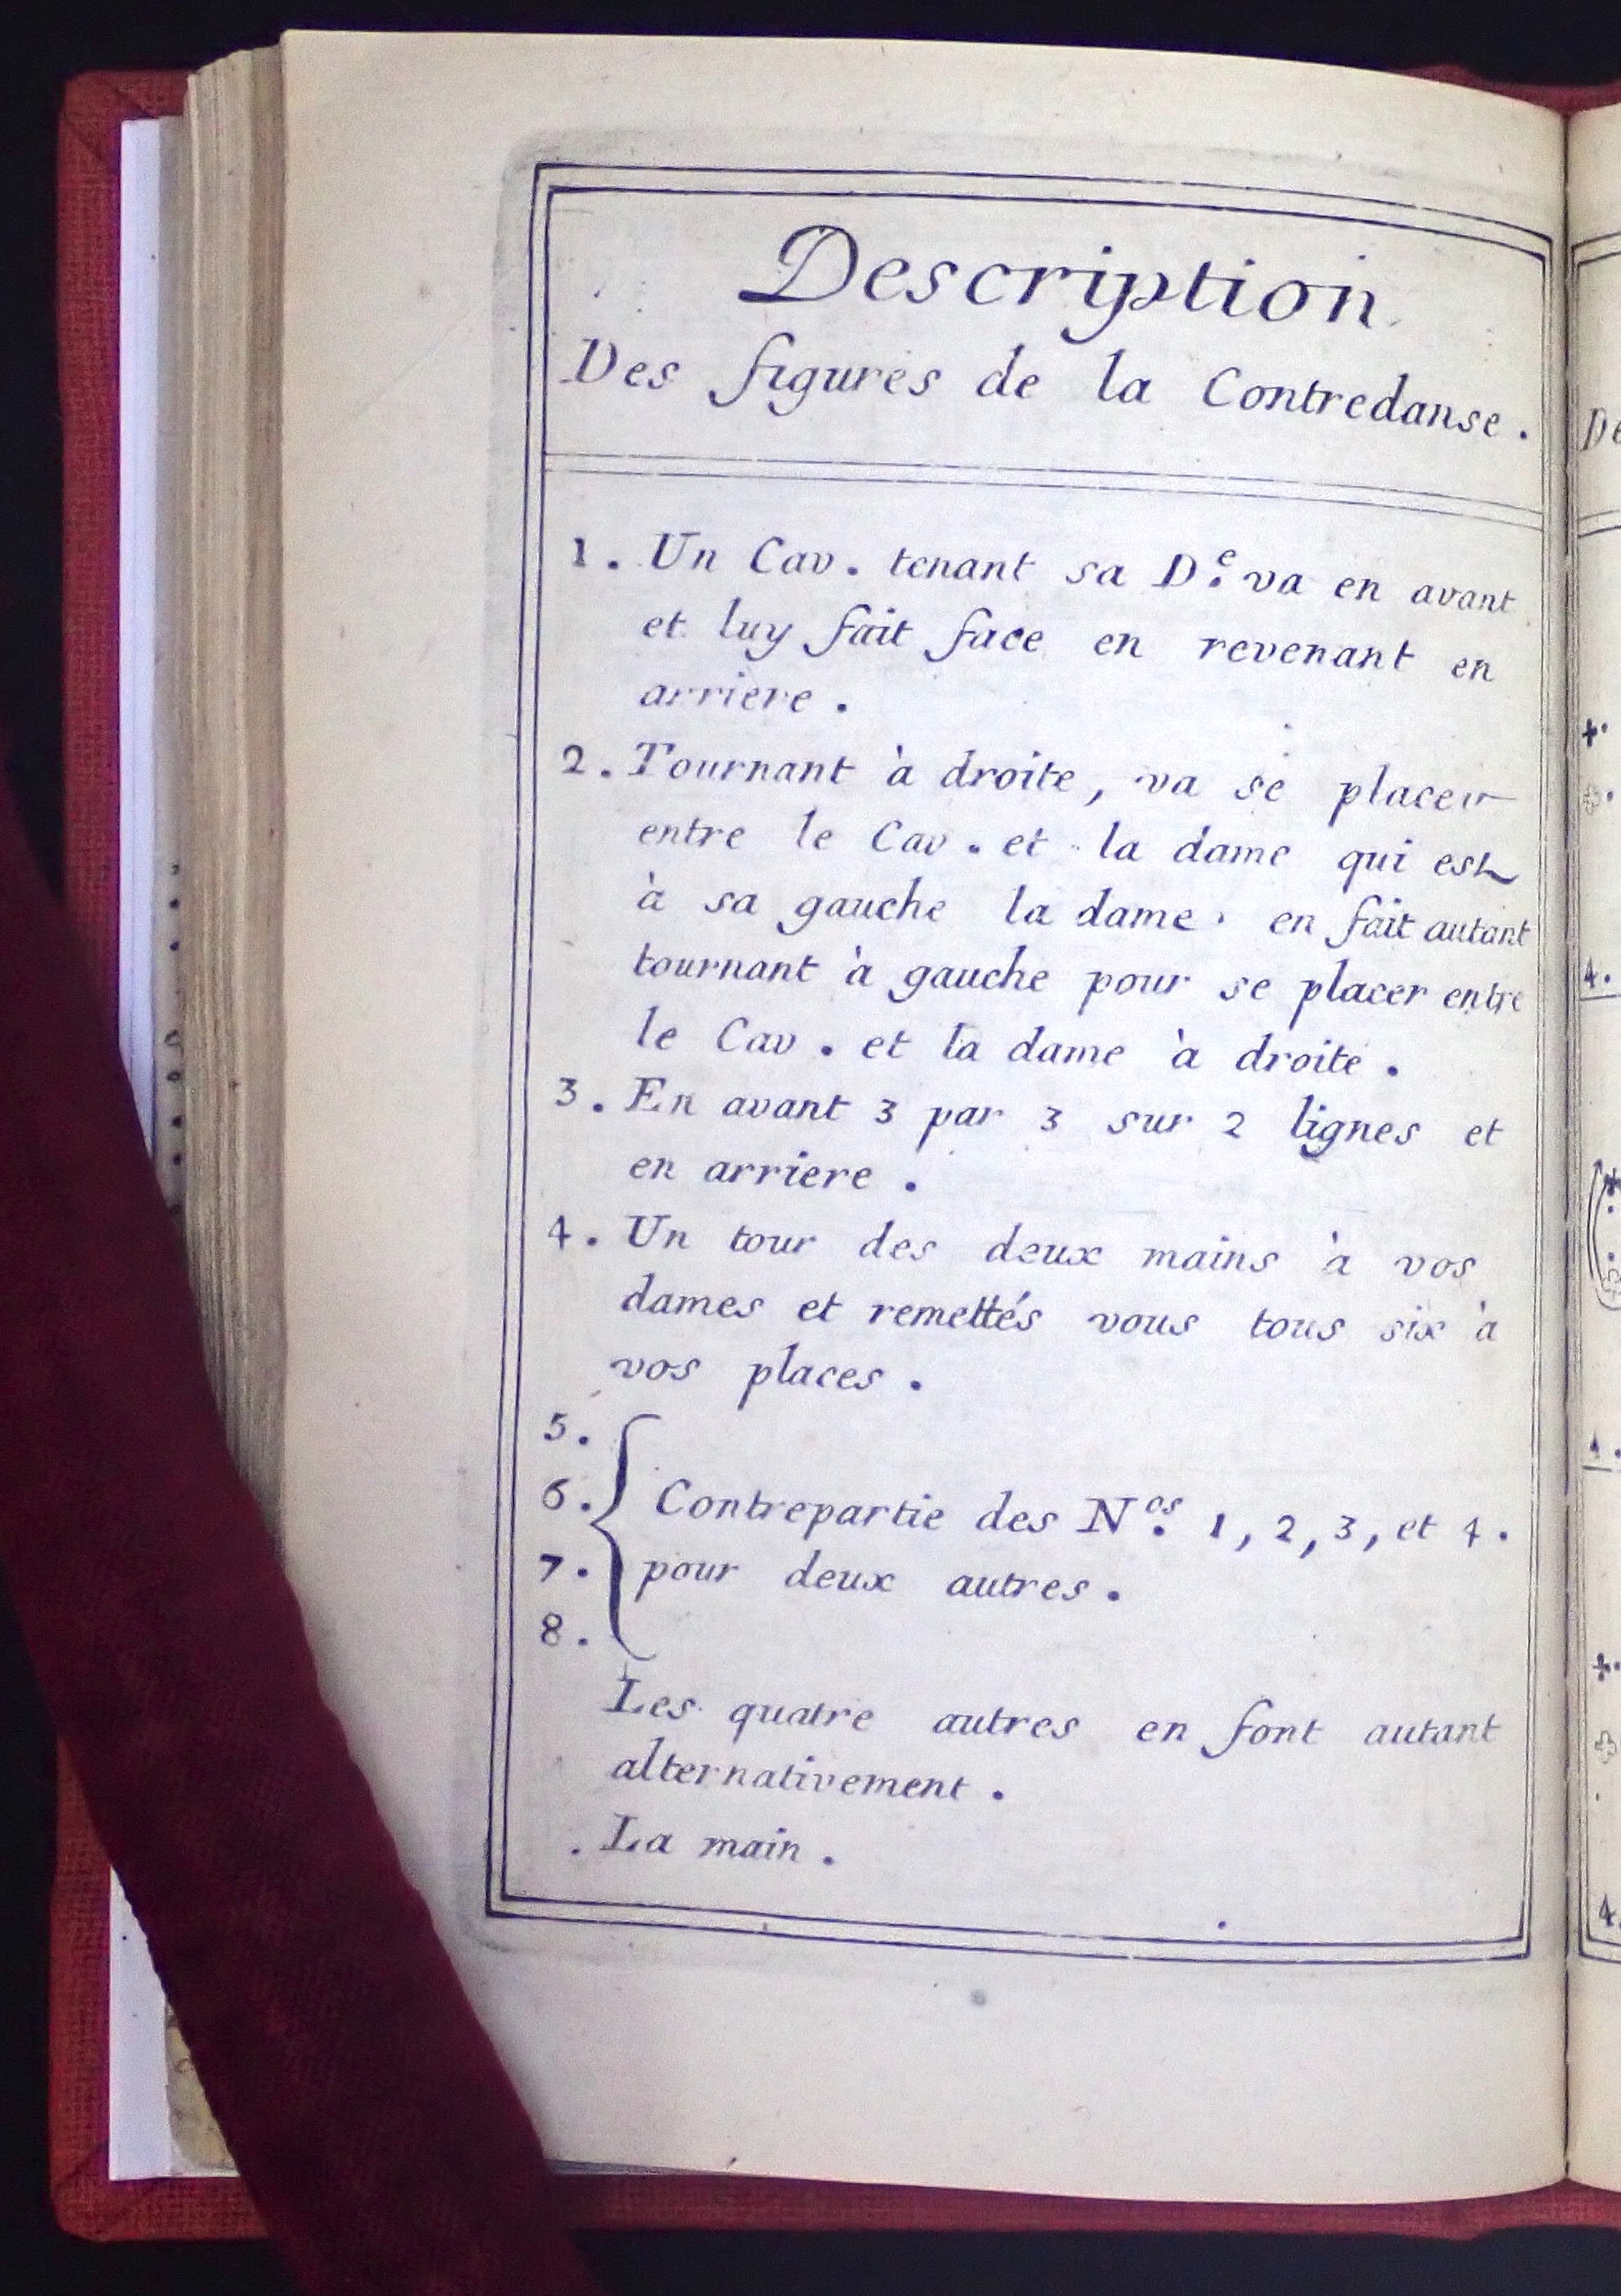 Description
Des figures de la Contredanse.
1. Un Cav. tenant sa D.e va en avant
et luy fait face en revenant en
arriere.
2. Tournant à droite, va se placer
entre le Cav. et la dame qui est
à sa gauche la dame en fait autant
tournant à gauche pour se placer entre
le Cav. et la dame à droite.
3. En avant 3 par 3 sur 2 lignes et
en arriere.
4. Un tour des deux mains à vos
dames et remettés vous tous six à
vos places.
5.
6. Contrepartie des N.os 1, 2, 3, et 4.
7. pour deux autres.
8.
Les quatre autres en font autant
alternativement.
. La main.
De
4.
4.